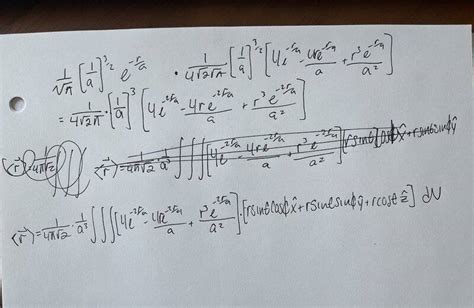 1/√π [1/a]^{3/2} e^{-r/a} · 1/(4√2√π) [1/a]^{3/2} [4e^{-r/a} - 4re^{-r/a}/a + r³e^{-r/a}/a²]
= 1/(4√2π) · [1/a]³ [4e^{-2r/a} - 4re^{-2r/a}/a + r³e^{-2r/a}/a²]
⟨r⃗⟩ = 1/(4π√2) ∭ ⟨r⃗⟩ = 1/(4π√2) · 1/a³ ∭ [4e^{-2r/a} - 4re^{-2r/a}/a + r³e^{-2r/a}/a²] [rsinθcosϕx̂ + rsinθsinϕŷ
⟨r⃗⟩ = 1/(4π√2) · 1/a³ ∭ [4e^{-2r/a} - 4re^{-2r/a}/a + r³e^{-2r/a}/a²] · [rsinθcosϕx̂ + rsinθsinϕŷ + rcosθẑ] dV